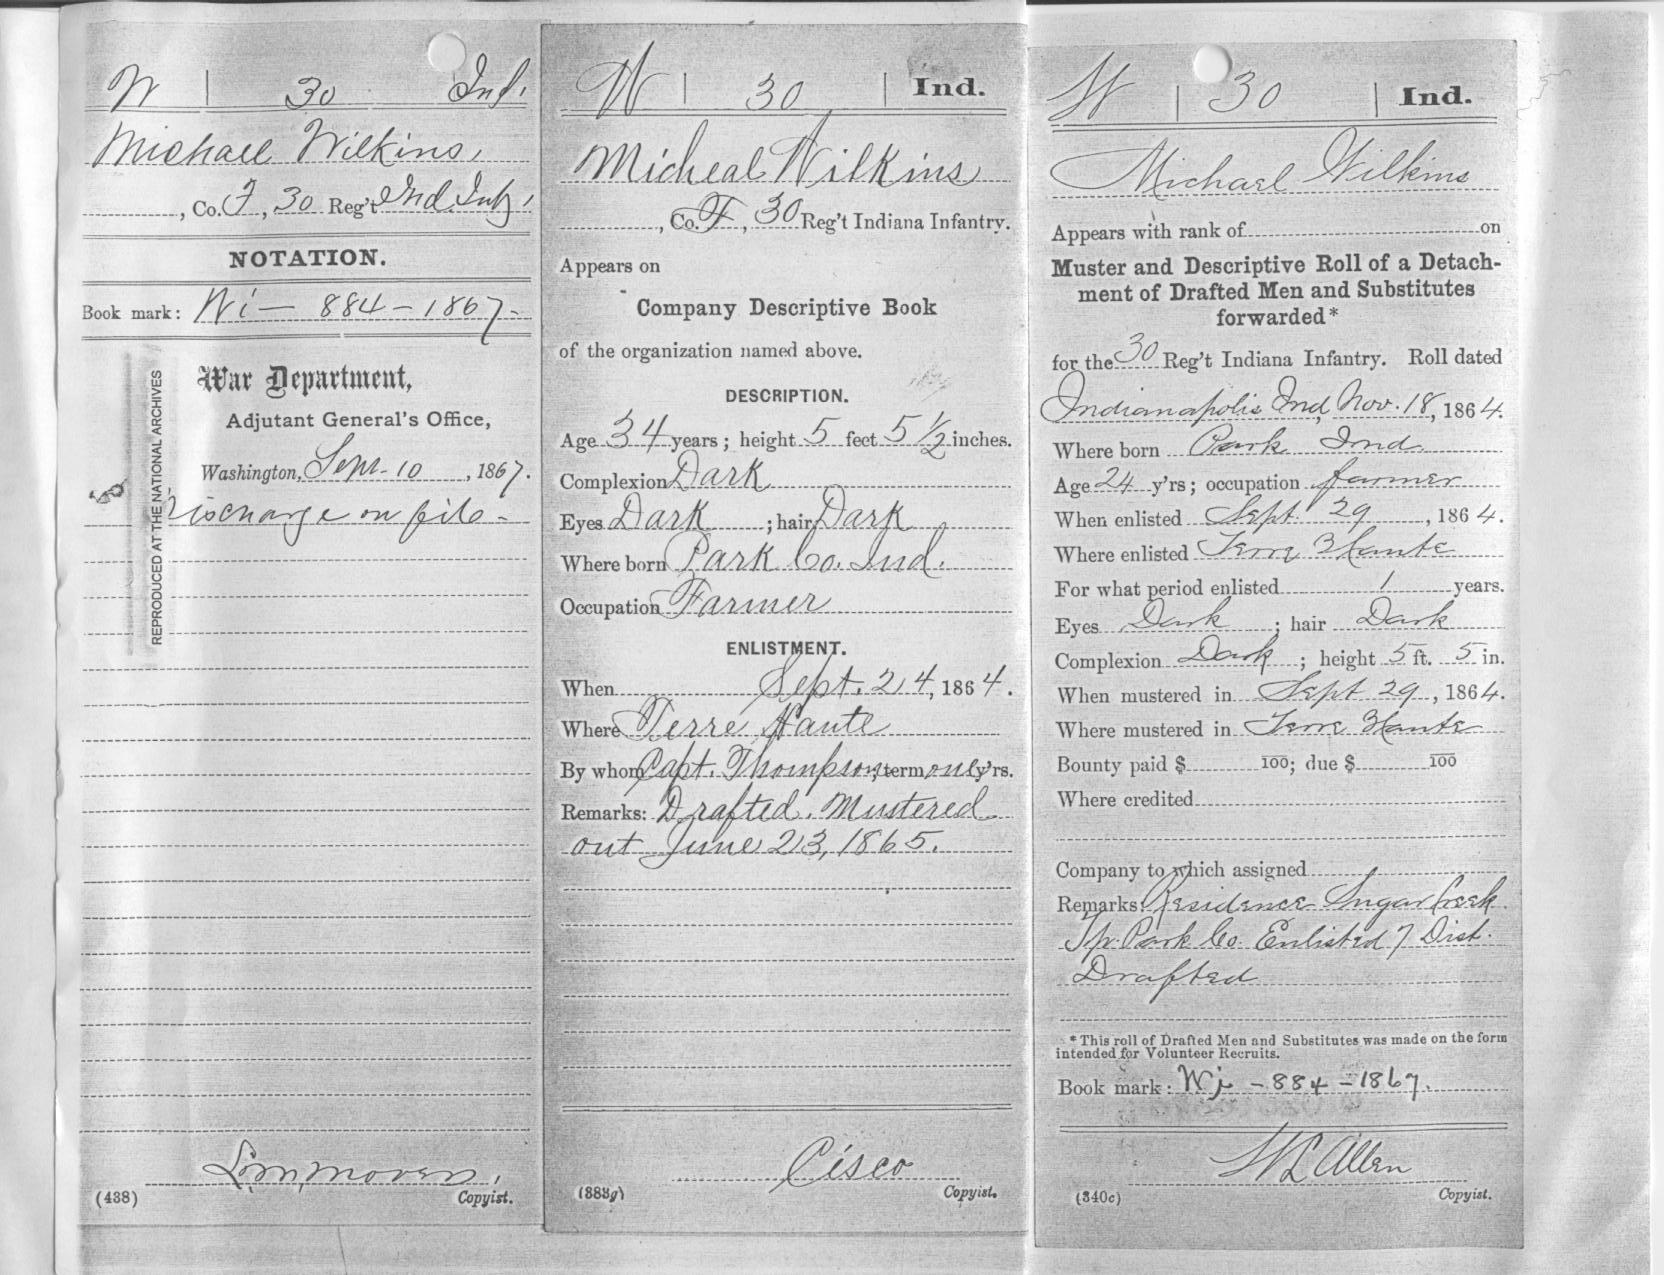 W | 30 Inf.
Michael Wilkins,
, Co. F, 30 Reg't Ind. Inf,
NOTATION.
Book mark: Wi — 884 — 1867 -
War Department,
Adjutant General's Office,
Washington, Sept. 10, 1867.
Discharge on file -
REPRODUCED AT THE NATIONAL ARCHIVES
(438)
Copyist.
W | 30 | Ind.
Micheal Wilkins
, Co. F, 30 Reg't Indiana Infantry.
Appears on
Company Descriptive Book
of the organization named above.
DESCRIPTION.
Age 34 years; height 5 feet 5 1/2 inches.
Complexion Dark
Eyes Dark ; hair Dark
Where born Park Co. Ind.
Occupation Farmer
ENLISTMENT.
When Sept. 24, 1864.
Where Terre Haute
By whom Capt. Thompson; term one y'rs.
Remarks: Drafted. Mustered
out June 23, 1865.
Cisco
(383g) Copyist.
W | 30 | Ind.
Michael Wilkins
Appears with rank of on
Muster and Descriptive Roll of a Detach-
ment of Drafted Men and Substitutes
forwarded*
for the 30 Reg't Indiana Infantry. Roll dated
Indianapolis Ind, Nov. 18, 1864.
Where born Park Ind.
Age 24 y'rs; occupation farmer
When enlisted Sept. 29, 1864.
Where enlisted Terre Haute
For what period enlisted 1 years.
Eyes Dark ; hair Dark
Complexion Dark ; height 5 ft. 5 in.
When mustered in Sept 29, 1864.
Where mustered in Terre Haute
Bounty paid $ 100; due $ 100
Where credited
Company to which assigned
Remarks: Residence Sugar Creek
Tp. Park Co. Enlisted 7 Dist.
Drafted
*This roll of Drafted Men and Substitutes was made on the form
intended for Volunteer Recruits.
Book mark: Wi - 884 - 1867.
W L Allen
(340c) Copyist.